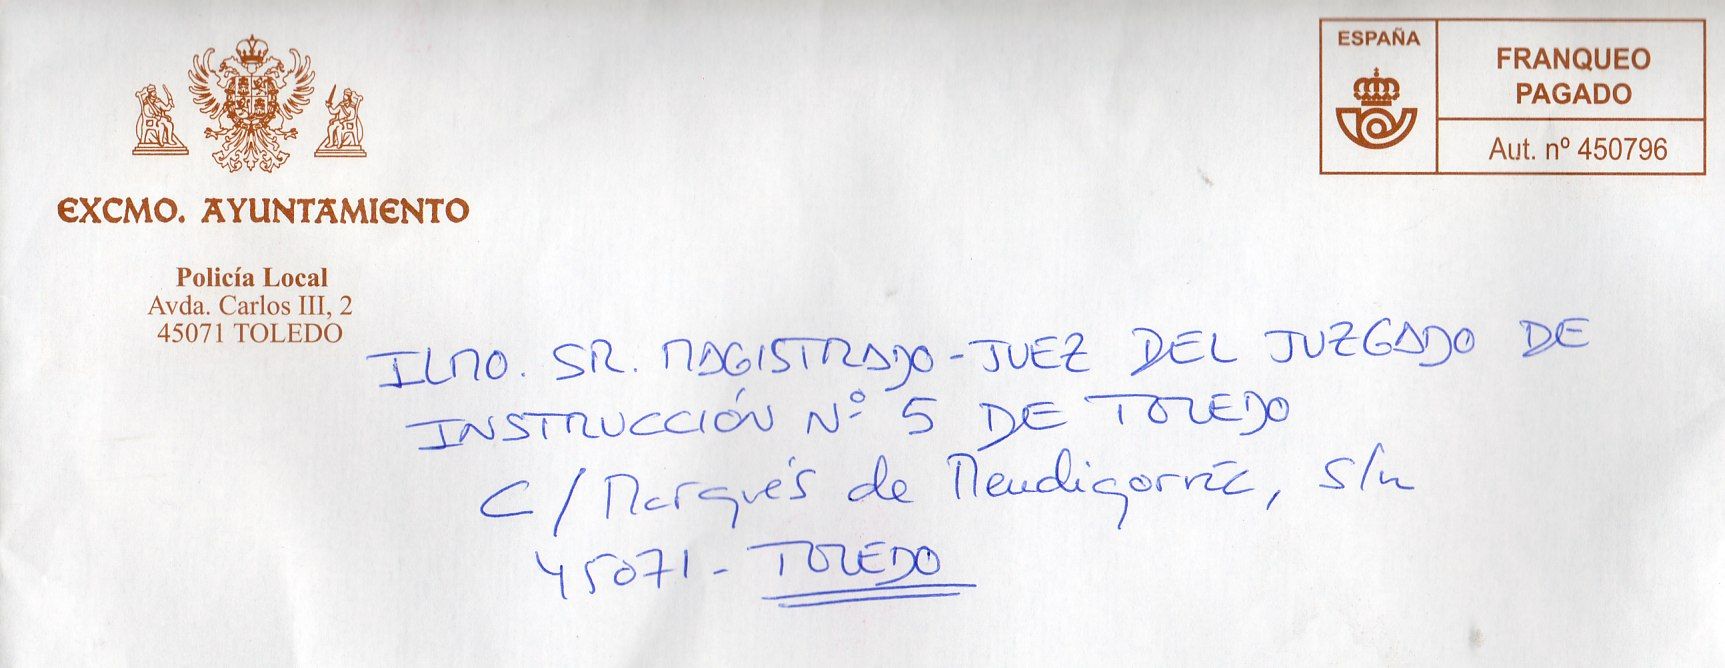 EXCMO. AYUNTAMIENTO
Policía Local
Avda. Carlos III, 2
45071 TOLEDO
ESPAÑA
FRANQUEO
PAGADO
Aut. nº 450796
ILMO. SR. MAGISTRADO-JUEZ DEL JUZGADO DE
INSTRUCCIÓN Nº 5 DE TOLEDO
C/ Marqués de Mendigorría, s/n
45071 - TOLEDO